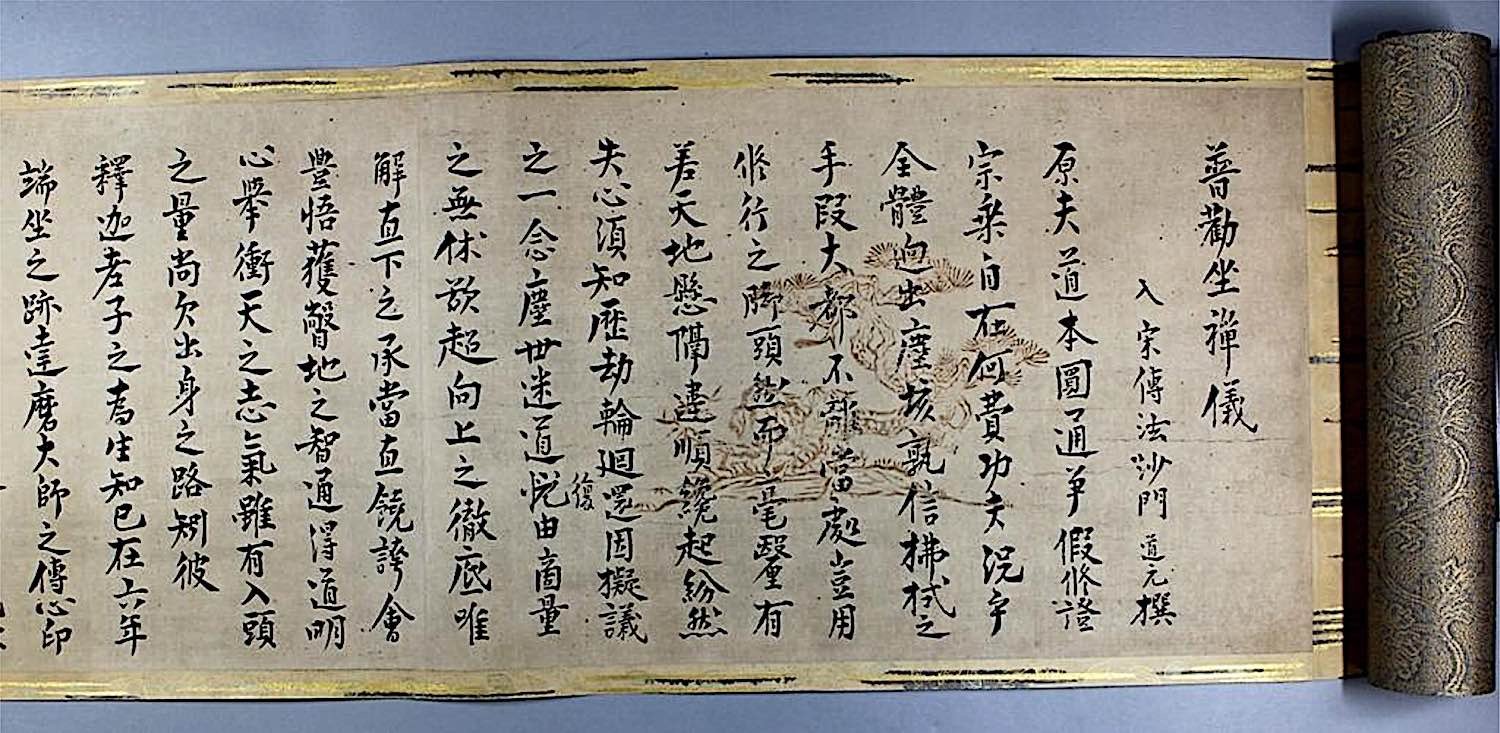 普勸坐禪儀
入宋傳法沙門道元撰
原夫道本圓通爭假修證
宗乘自在何費功夫況乎
全體逈出塵埃孰信拂拭之
手段大都不離當處豈用
修行之脚頭然而毫釐有
差天地懸隔違順纔起紛然
失心須知歷劫輪迴還因擬議
復
之一念塵世迷道悅由商量
之無休欲超向上之徹底唯
解直下之承當直饒誇會
豐悟獲瞥地之智通得道明
心擧衝天之志氣雖有入頭
之量尚欠出身之路矧彼
釋迦老子之爲生知已在六年
端坐之跡達磨大師之傳心印